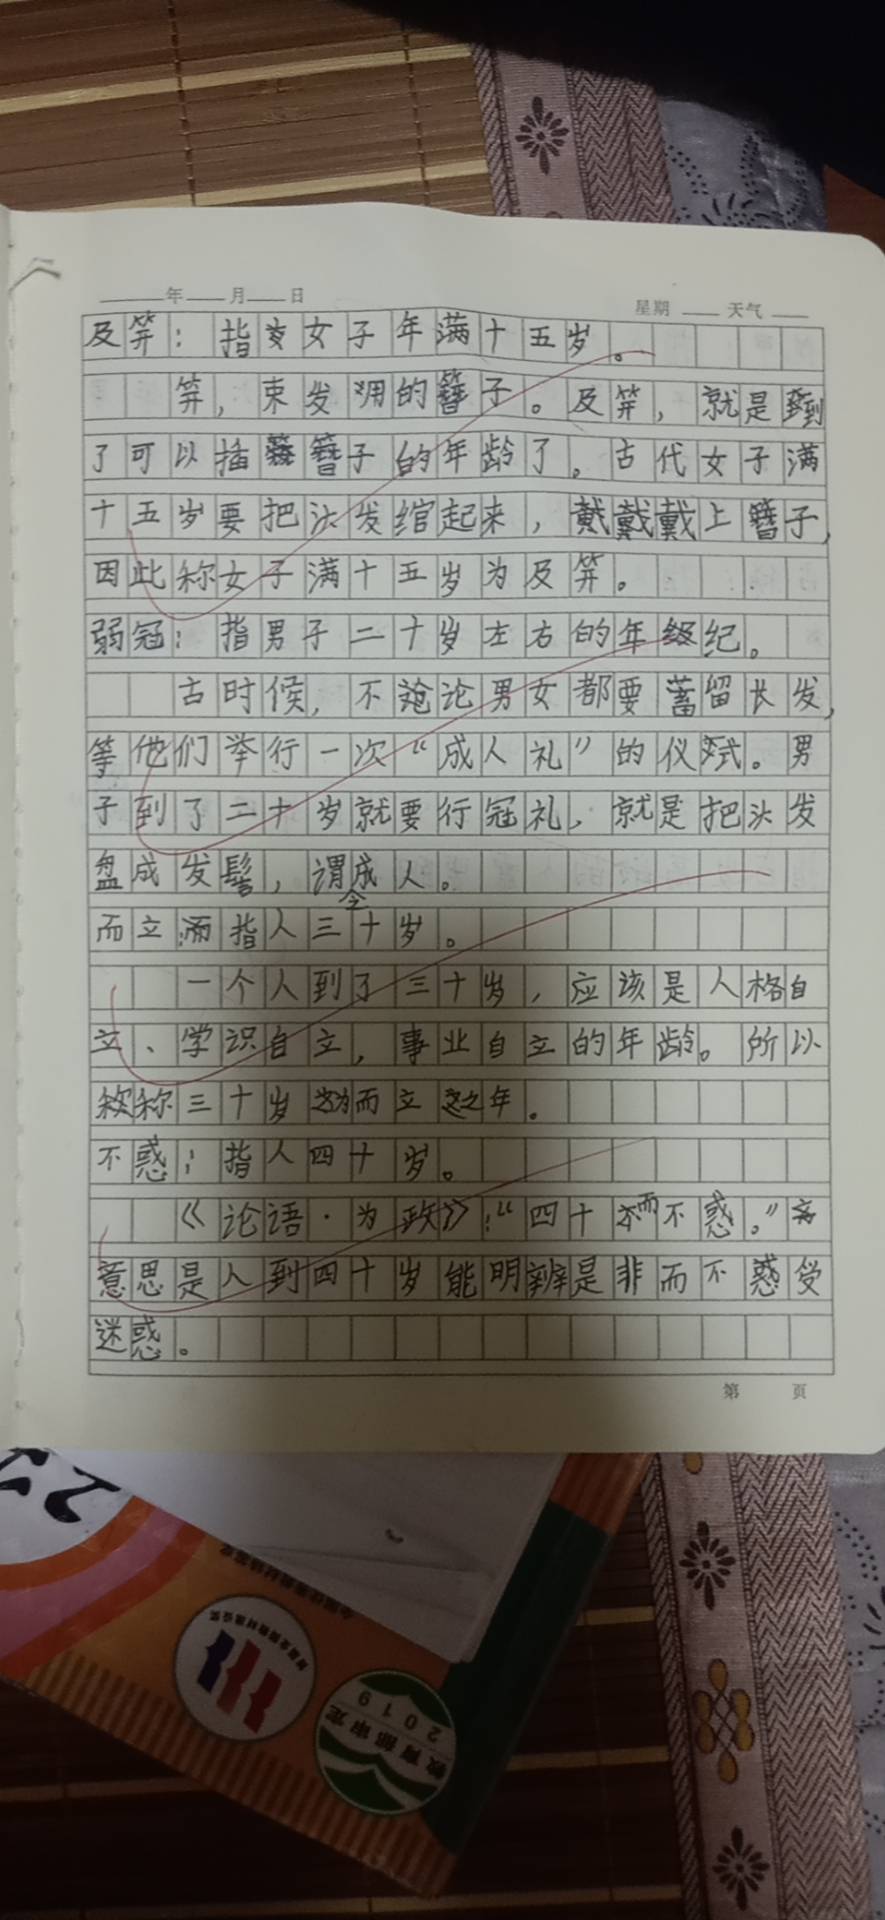 年 月 日 星期 天气
及笄：指女子年满十五岁。
笄，束发用的簪子。及笄，就是到
了可以插簪子的年龄了。古代女子满
十五岁要把头发绾起来，戴上簪子，
因此称女子满十五岁为及笄。
弱冠：指男子二十岁左右的年纪。
古时候，不论男女都要蓄留长发，
等他们举行一次“成人礼”的仪式。男
子到了二十岁就要行冠礼，就是把头发
盘成发髻，谓成人。
而立：指人三十岁。
一个人到了三十岁，应该是人格自
立、学识自立，事业自立的年龄。所以
称三十岁为而立之年。
不惑：指人四十岁。
《论语·为政》：“四十而不惑。”
意思是人到四十岁能明辨是非而不受
迷惑。
第 页
教育部审定
2019